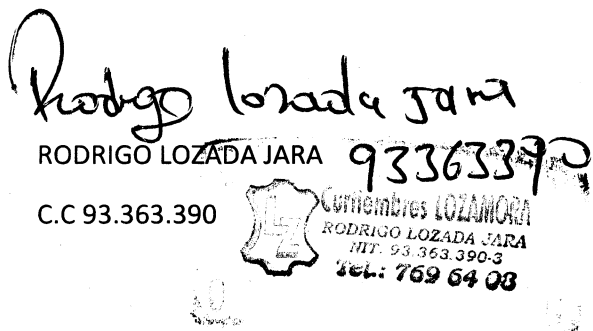 Rodrigo Lozada Jara
RODRIGO LOZADA JARA 93363390
C.C 93.363.390
LZ
Curtiembres LOZAMORA
RODRIGO LOZADA JARA
NIT. 93.363.390-3
Tel.: 769 64 08